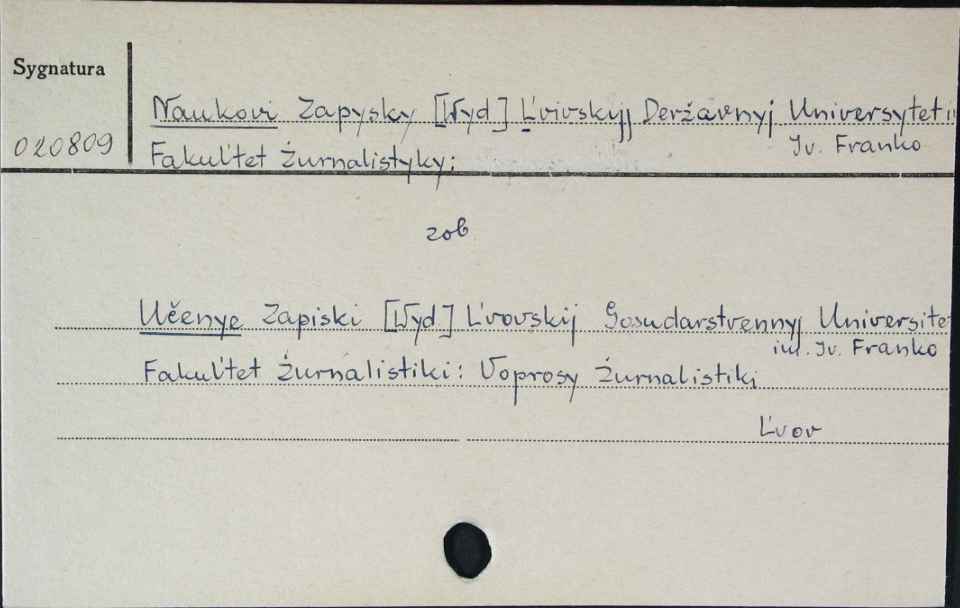 Sygnatura
Naukovi Zapysky [Wyd] L'vivskyj Deržavnyj Universytet im
Iv. Franko
020809
Fakul'tet Žurnalistyky:
zob
Učenye Zapiski [Wyd] L'vovskij Gosudarstvennyj Universite
im. Iv. Franko
Fakul'tet Žurnalistiki: Voprosy Žurnalistiki
L'vov